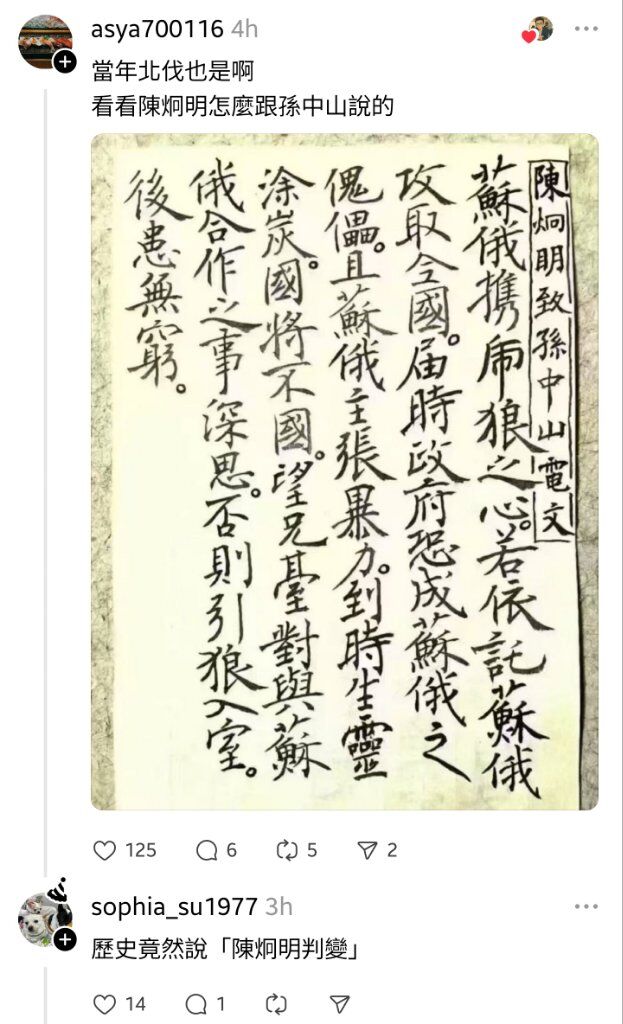 asya700116 4h
當年北伐也是啊
看看陳炯明怎麼跟孫中山說的
陳炯明致孫中山電文
蘇俄携虎狼之心。若依託蘇俄
攻取全國。届時政府恐成蘇俄之
傀儡。且蘇俄主張暴力。到時生靈
涂炭。國將不國。望兄臺對與蘇
俄合作之事深思。否則引狼入室。
後患無窮。
125 6 5 2
sophia_su1977 3h
歷史竟然說「陳炯明判變」
14 1